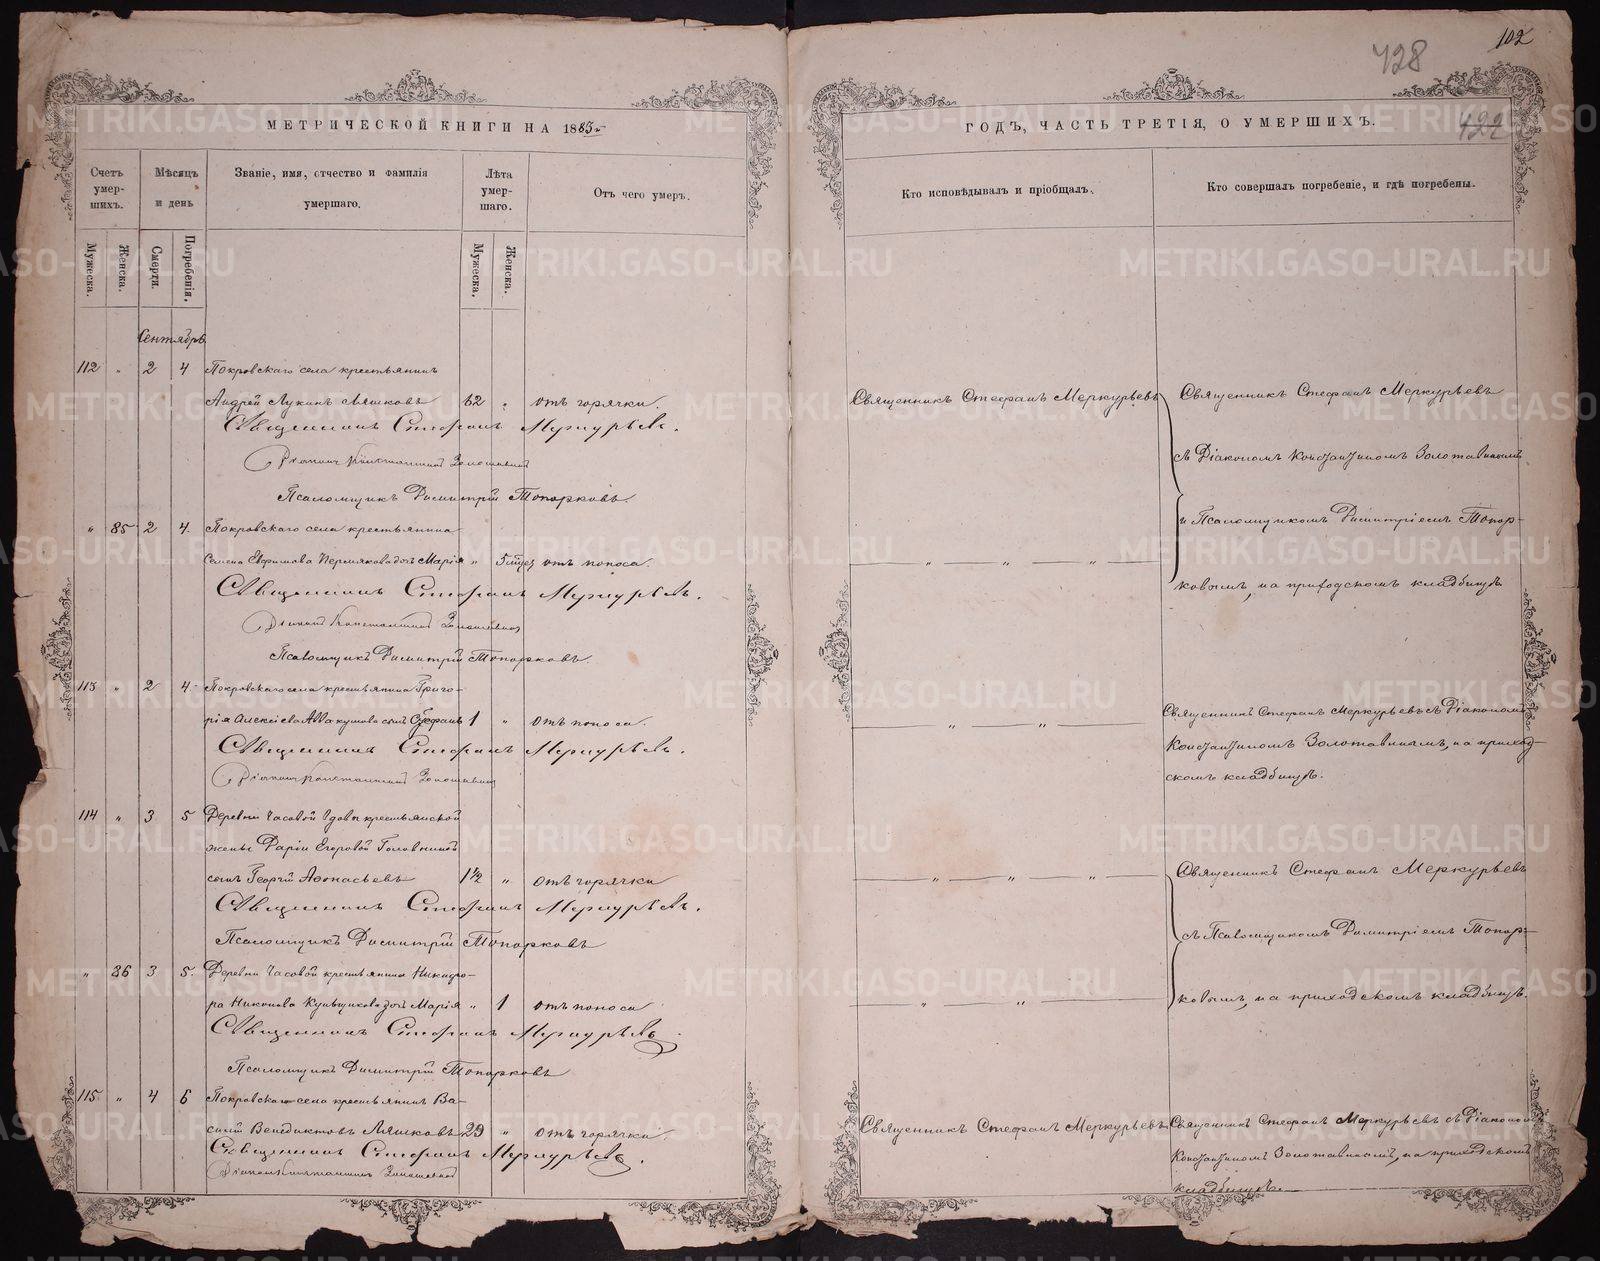 102
428
422
МЕТРИЧЕСКОЙ КНИГИ НА 1883й
Счетъ умер- шихъ.
Мѣсяцъ и день
Званіе, имя, отчество и фамилія умершаго.
Лѣта умер- шаго.
Отъ чего умеръ.
Мужеска.
Женска.
Смерти.
Погребенія.
Мужеска.
Женска.
Сентябрь
112 „ 2 4 Покровскаго села крестьянинъ
Андрей Лукинъ Ляшковъ 62 „ отъ горячки.
Священникъ Стефанъ Меркурьевъ.
Діаконъ Константинъ Золотавинъ
Псаломщикъ Димитрій Топорковъ.
„ 85 2 4. Покровскаго села крестьянина
Семена Евфимова Пермякова дочь Марія „ 5 мцев отъ поноса.
Священникъ Стефанъ Меркурьевъ.
Діаконъ Константинъ Золотавинъ
Псаломщикъ Димитрій Топорковъ.
113 „ 2 4. Покровскаго села крестьянина Григо-
рія Алексіева Аввакумова сынъ Стефанъ 1 „ отъ поноса.
Священникъ Стефанъ Меркурьевъ.
Діаконъ Константинъ Золотавинъ
114 „ 3 5 Деревни Часовой вдовы крестьянской
жены Даріи Егоровой Головниной
сынъ Георгій Аѳонасьевъ 1½ „ отъ горячки
Священникъ Стефанъ Меркурьевъ.
Псаломщикъ Димитрій Топорковъ
„ 86 3 5. Деревни Часовой крестьянина Никифо-
ра Никонова Кувшинова дочь Марія „ 1 отъ поноса
Священникъ Стефанъ Меркурьевъ
Псаломщикъ Димитрій Топорковъ
115 „ 4 6 Покровскаго села крестьянинъ Ва-
силій Венедиктовъ Ляшковъ 29 „ отъ горячки.
Священникъ Стефанъ Меркурьевъ.
Діаконъ Константинъ Золотавинъ
ГОДЪ, ЧАСТЬ ТРЕТІЯ, О УМЕРШИХЪ.
Кто исповѣдывалъ и пріобщалъ.
Кто совершалъ погребеніе, и гдѣ погребены.
Священникъ Стефанъ Меркурьевъ
Священникъ Стефанъ Меркурьевъ
съ Діакономъ Константиномъ Золотавинымъ
и Псаломщикомъ Димитріемъ Топор-
ковымъ, на приходскомъ кладбищѣ
— „ — „ — „ —
— „ — „ —
Священникъ Стефанъ Меркурьевъ съ Діакономъ
Константиномъ Золотавинымъ, на приход-
скомъ кладбищѣ.
— „ — „ — „ —
Священникъ Стефанъ Меркурьевъ
съ Псаломщикомъ Димитріемъ Топор-
ковымъ, на приходскомъ кладбищѣ.
— „ — „ —
Священникъ Стефанъ Меркурьевъ
Священникъ Стефанъ Меркурьевъ съ Діакономъ
Константиномъ Золотавинымъ, на приходскомъ
кладбищѣ.
METRIKI.GASO-URAL.RU